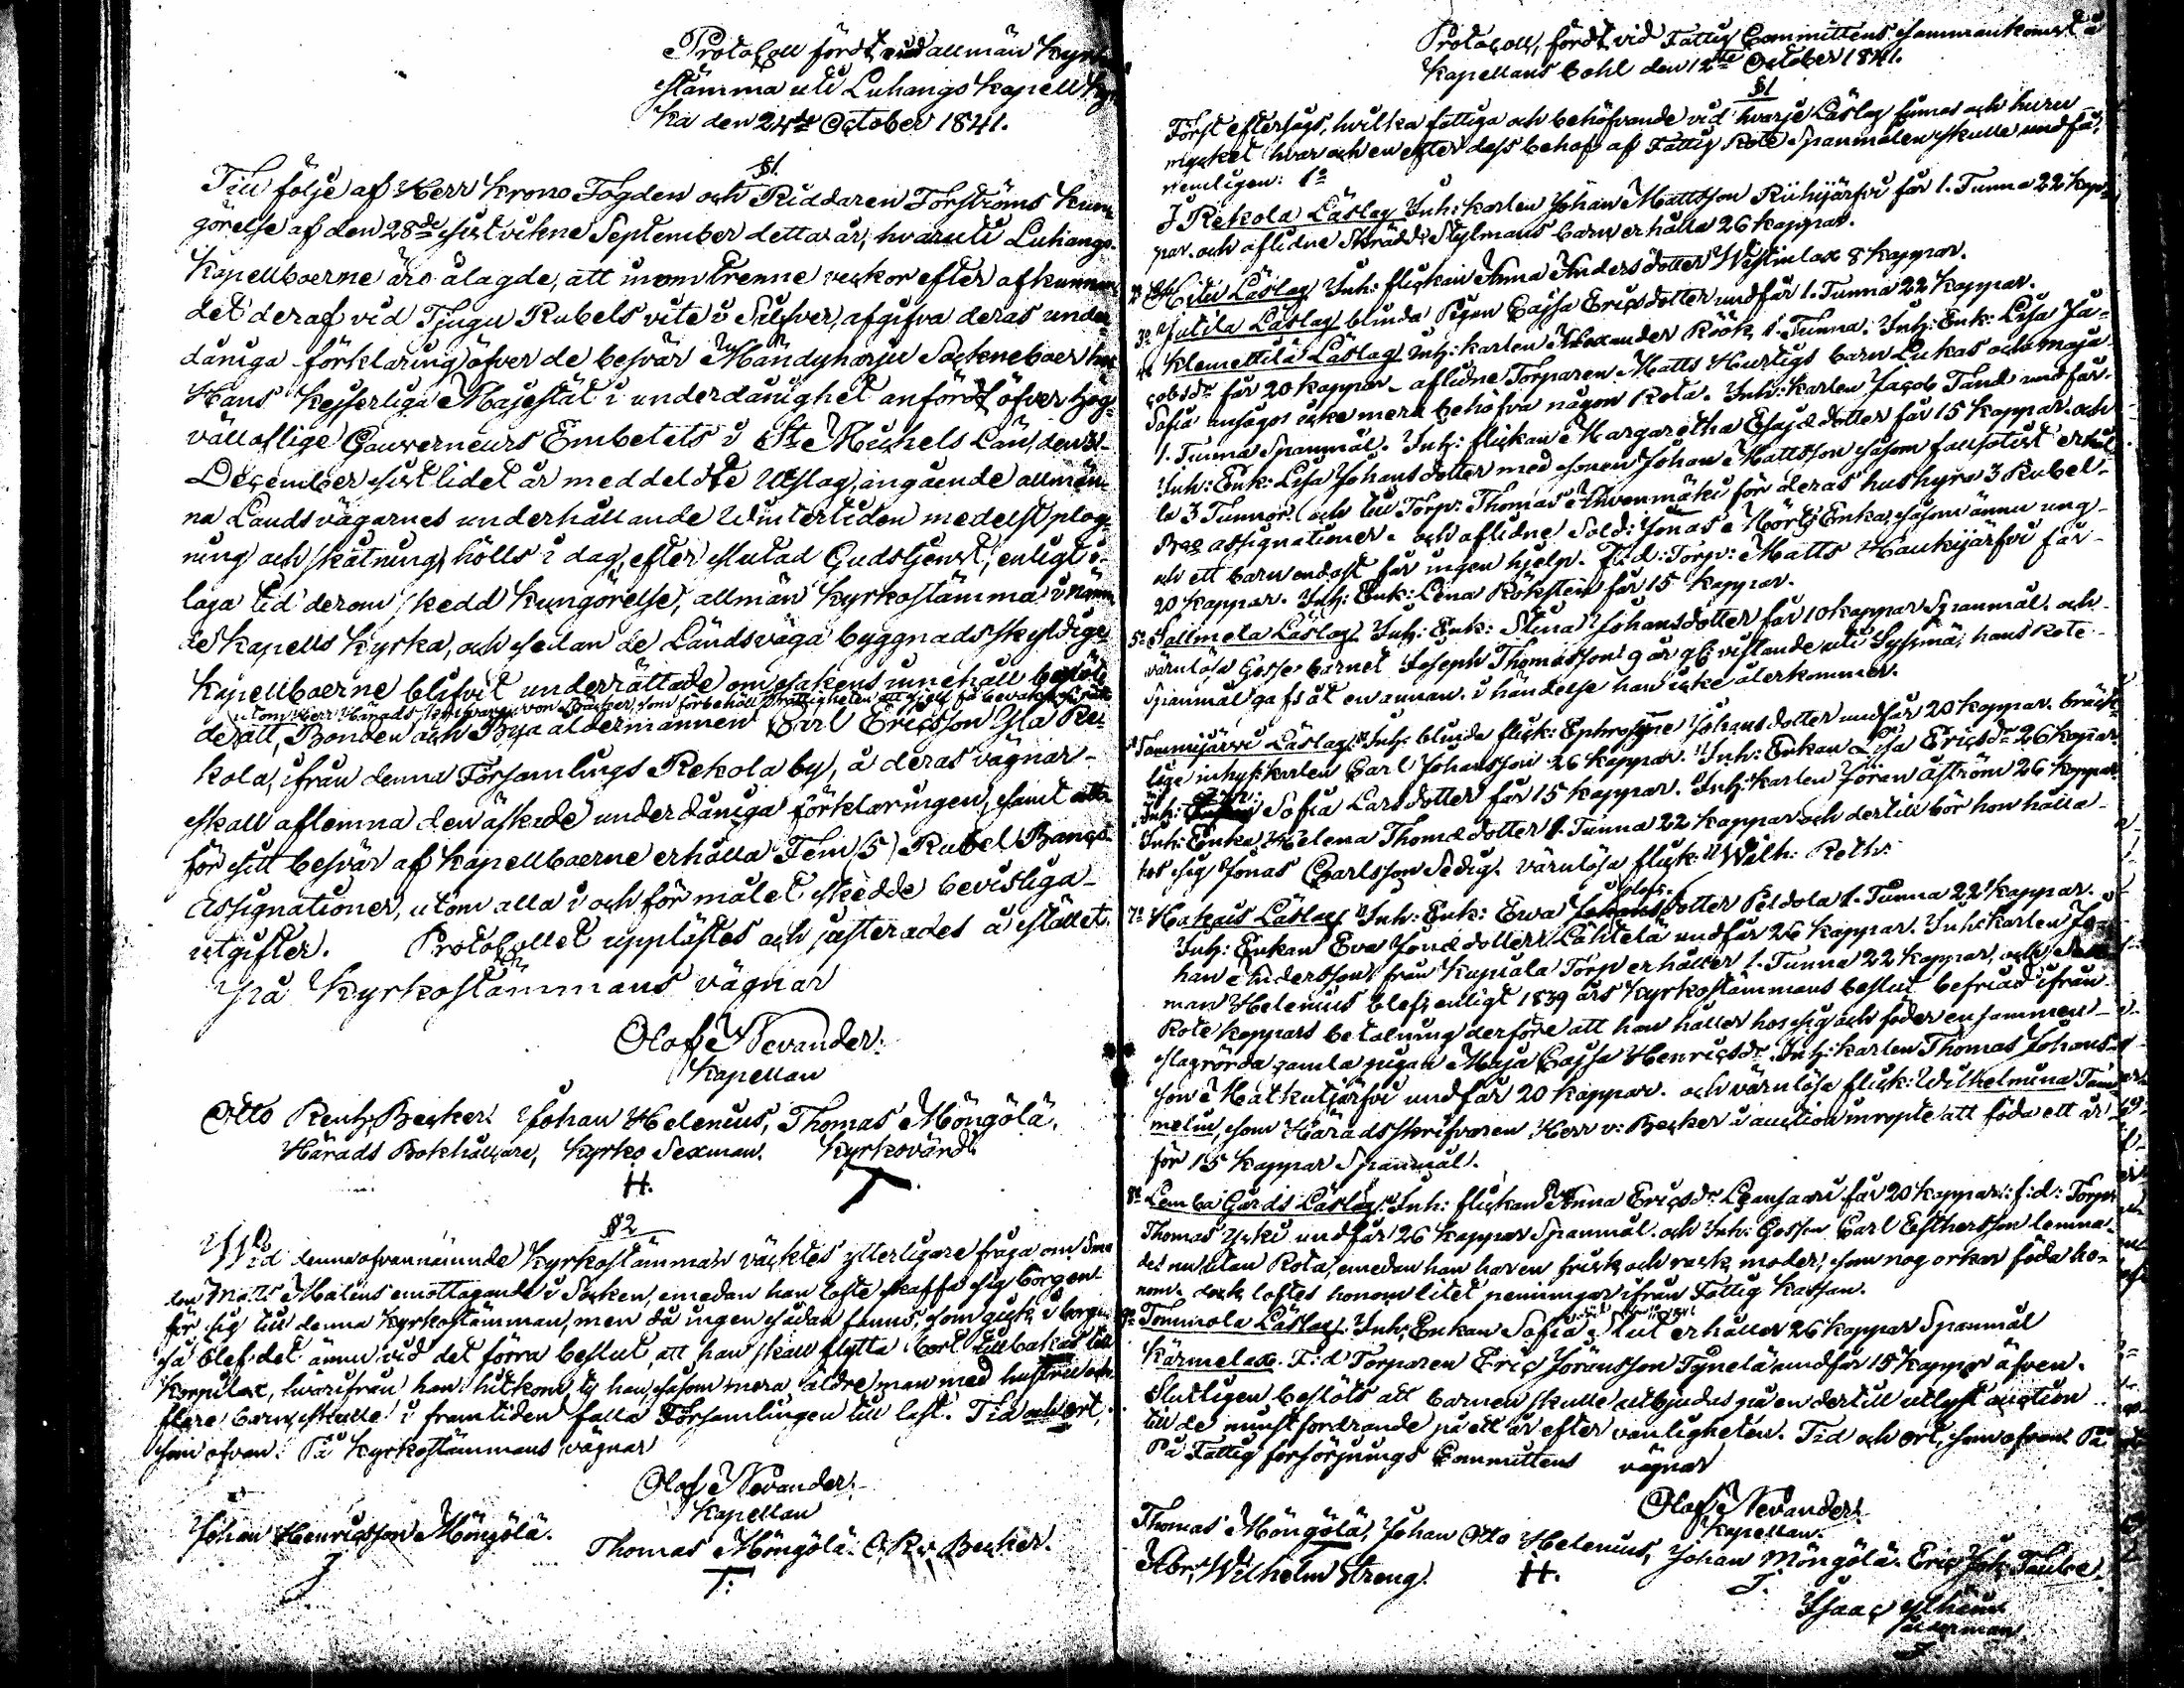 Protocoll fördt vid allmän Kyrko
stämma uti Luhango Kapell Kyr
ka den 24de October 1841.
§1.
Till följe af Herr Krono Fogden och Riddaren Forströms kun
görelse af den 28de sistvikne September detta år, hvaruti Luhango
Kapellboerne äro ålagde, att inom trenne veckor efter afkunnan
det deraf vid Tjugu Rubels vite i Silfver, afgifva deras under
dåniga förklaring öfver de besvär Mändyharju Sockneboer hos
Hans Kejserliga Majestät i underdånighet anfördt öfver hög
välloflige Gouverneurs Embetets i St Michels Län, den 31
December sist lidet år meddelte Utslag, angående allmän
na Landsvägarnes underhållande Wintertiden medelst plog
ning och skatning hölls i dag, efter slutad Gudstjenst, enligt i
laga tid derom skedd kungörelse, allmän Kyrkostämma i nämn
de Kapells Kyrka, och sedan de Landsväga byggnads skyldige
Kapellboerne blifvit underrättade om sakens innehåll beslöts
utom Herr Härads skrifvaren von Becker, som förbehöll sig rättigheten att sjelf få bevaka sin rätt
det att, Bonden och Bya åldermannen Carl Ericsson Yla Re
kola, ifrån denna Församlings Rekola by, å deras vägnar
skall aflemna den äskade underdåniga förklaringen, samt att
för sitt besvär af Kapellboerne erhålla Fem (5) Rubel Banco
Assignationer, utom alla i och för målet skedde bevisliga
utgifter. Protocollet upplästes och justerades å stället.
På Kyrkostämmans vägnar
Olof Nevander.
Kapellan
Otto Reinh Becker. Johan Helenius, Thomas Möngölä,
Härads Bokhållare, Kyrko Sexman. Kyrkovärd.
H. T.
§2
Wid denna ofvannämnde Kyrkostämman väcktes ytterligare fråga om Sme
den Matts Malins emottagande i Socken, emedan han lofte skaffa sig borgen
för sig till denna Kyrkostämman, men då ingen sådan fanns, som gick i borgen
så blef det ännu vid det förra beslut, att han skall flytta bort tillbakas till
Korpilax, hvarifrån han hitkom, ty han, såsom mera äldre man med hustru och
flere barn, skulle i framtiden falla Församlingen till last. Tid och ort,
som ofvan. På Kyrkostämmans vägnar
Olof Nevander.
Kapellan
Johan Henricsson Möngölä. Thomas Möngölä. O. R. v. Becker.
J T.
Protocoll, fördt vid Fattig Committens sammankomst å
Kapellans bohl den 12te October 1841.
§1
Först eftersågs, hvilka fattiga och behöfvande vid hvarje Läslag finnas och huru
mycket hvar och en efter dess behof af Fattig Rote Spanmålen skulle undfå,
nemligen: 1o
I Rekola Läslag Inh: karlen Johan Mattsson Riihijärfvi får 1. Tunna 22 kap
par. och aflidne Skrädd: Stylmans barn erhålla 26 kappar.
2o Hitu Läslag Inh: flickan Anna Anders dotter Wästinlax 8 kappar.
3o Jutila Läslag blinda Pigan Cajsa Ericsdotter undfår 1. Tunna 22 kappar.
4o Klemettilä Läslag Inh: karlen Alexander Röök 1. Tunna. Inh: Enk: Lisa Ja
cobsdr får 20 kappar. aflidne Torparen Matts Hurtigs barn Lukas och Maja
Sofia ansågs icke mera behöfva någon Rota. Inh: karlen Jacob Tand undfår
1. Tunna Spanmål. Inh: flickan Margaretha Esajæ dotter får 15 kappar. och
Inh: Enk: Lisa Johans dotter med sonen Johan Mattsson såsom fallsotist erhål
la 3 Tunnor och till Torp: Thomas Ahvenmäki för deras hushyra 3 Rubel
Bco assignationer. och aflidne Sold: Jonas Mörts Enka, såsom ännu ung
och ett barn endast får ingen hjelp. F.d: Torp: Matts Haukijärfvi får
20 kappar. Inh: Enk: Lena Rökstén får 15 kappar.
5o Tallmela Läslag Inh: Enk: Stina Johans dotter får 10 kappar Spanmål. och
värnlösa Gosse barnet Joseph Thomasson 9 år gl: vistande uti Sysmä, hans Rote
Spanmål gafs åt en annan. i händelse han icke återkommer.
Tammijärvi Läslag. Inh: blinda flick: Ephrosyne Johans dotter undfår 20 kappar. bräck
lige inhys: karlen Carl Johansson 26 kappar. Inh: Enkan Lisa Ericsdr 26 kappar
Inh: Sofia Lars dotter får 15 kappar. Inh: karlen Jöran Åström 26 kappar
Inh: Enka Helena Thomæ dotter 1. Tunna 22 kappar och dertill bör hon hålla
hos sig Jonas Carlsson Sedig. värnlösa flick: Wilh: Reth:
7o Hakais Läslag Inh: Enk: Ewa Olofs dotter Peldola 1. Tunna 22 kappar.
Inh: Enkan Eva Jonæ dotter Lähtelä undfår 26 kappar. Inh: karlen Jo
han Andersson från Kupiala Torp erhåller 1. Tunna 22 kappar, och Sex
man Helenius blef enligt 1839 års Kyrkostämmans beslut befriad ifrån
Rote kappars betalning derföre att han håller hos sig och föder en sammen
slagrörda gamla pigan Maja Cajsa Henricsdr. Inh: karlen Thomas Johans
son Matkutjärfvi undfår 20 kappar. och värnlösa flick: Wilhelmina Tam
melin, som Häradsskrifvaren Herr v: Becker i auction inropte att föda ett år
för 15 kappar Spanmål.
8o Lemba Gårds Läslag. Inh: flickan Anna Ericsdr Leansaari får 20 kappar: f:d: Torp:
Thomas Yski undfår 26 kappar Spanmål. och Inh: Gossen Carl Esthersson lemna
des nu utan Rota, emedan han har en frisk och rask moder, som nog orkar föda ho
nom. dock loftes honom litet penningar ifrån Fattig Kassan.
9o Tommola Läslag. Inh: Enkan Sofia Slut erhåller 26 kappar Spanmål
Kärmelax. F:d Torparen Eric Jöransson Tynelä undfår 15 kappar äfven.
Slutligen beslöts att barnen skulle utbjudas på en dertill utlyst auction
till de minst fordrande på ett år efter vanligheten. Tid och ort, som ofvan. På
På Fattig försörjnings Committens vägnar
Olof Nevander.
Kapellan.
Thomas Möngölä, Johan Otto Helenius, Johan Möngölä. Eric Joh: Taube,
Abr: Wilhelm Streng. H. J.
Isaac